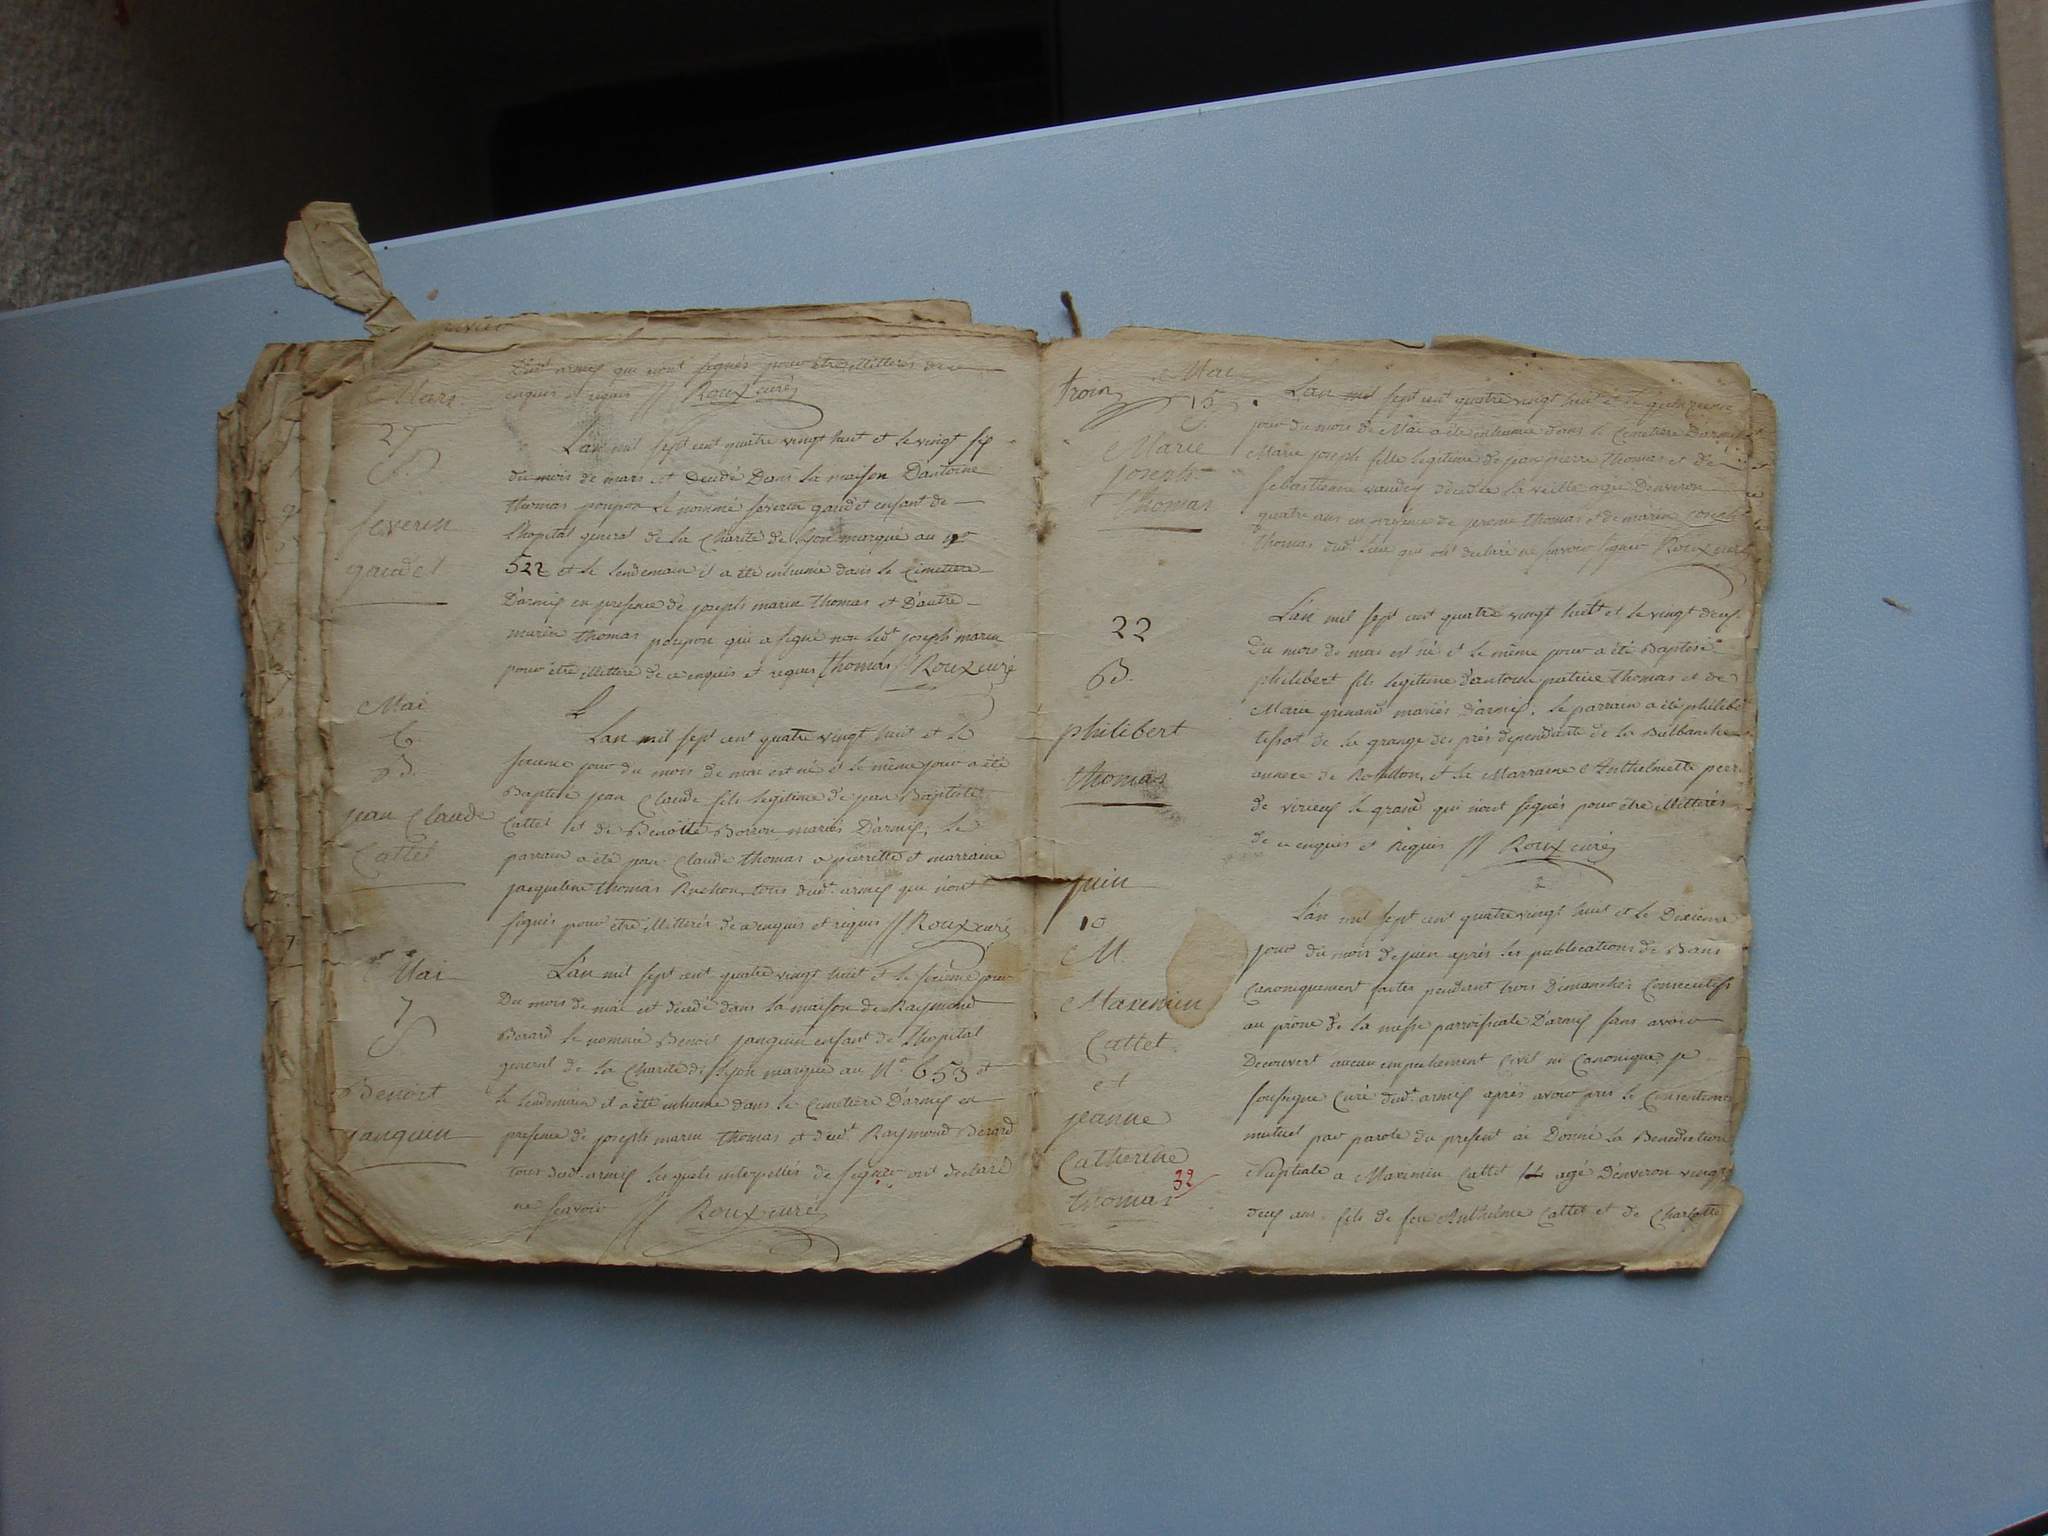 Dud.t armis qui n'ont signés pour être illitterés de ce
enquis et requis // Roux curé
Mars
27
S.
severin
gaudet
L'an mil sept cent quatre vingt huit et le vingt sep
du mois de mars est decedé Dans la maison D'antoine
thomas poupon le nommé severin gaudet enfant de
l'hopital general de la Charité de Lyon marqué au n.o
522 et le lendemain il a été inhumé dans le Cimetiere
D'armis en presence de joseph marin thomas et D'autre
marin thomas poupon qui a signé non led.t joseph marin
pour être illitteré de ce enquis et requis thomas // Roux curé
Mai
6
B.
jean Claude
Cattet
L'an mil sept cent quatre vingt huit et le
sixieme jour du mois de mai est né et le même jour a été
Baptisé jean Claude fils legitime de jean Baptiste
Cattet et de Benoitte Borron mariés D'armis, le
parrain a été jean Claude thomas a pierrette et marraine
jacqueline thomas Ruchon, tous dud.t armis qui n'ont
signés pour être illitterés de ce enquis et requis // Roux curé
Mai
7
S
Benoit
janquin
L'an mil sept cent quatre vingt huit et le sixieme jour
Du mois de mai est decedé dans la maison de Raymond
Berard le nommé Benoit janquin enfant de l'hopital
general de la Charité de Lyon marqué au N.o 653 et
le lendemain il a été inhumé dans le Cimetiere D'armis en
presence de joseph marin thomas et dud.t Raymond Berard
tous dud.t armis lesquels interpellés de signer ont declaré
ne sçavoir // Roux curé
troin
Mai
15
S
Marie
joseph
thomas
L'an mil sept cent quatre vingt huit et le quinzieme
jour du mois de Mai a été inhumée dans le Cimetiere D'armis
Marie joseph fille legitime de jean pierre thomas et de
sebastienne vaudey decedée la veille agée D'environ
quatre ans en presence de jerome thomas et de marin joseph
thomas dud.t lieu qui ont declaré ne sçavoir signer Roux curé
22
B.
philibert
thomas
L'an mil sept cent quatre vingt huit et le vingt deux
Du mois de mai est né et le même jour a été Baptisé
philibert fils legitime d'antoine patrice thomas et de
Marie grinand mariés D'armis, le parrain a été philibert
tissot de la grange des prés dependante de la Bâlbanche
annexe de Rossillon, et la Marraine Anthelmette perr
de virieux le grand qui n'ont signés pour être illitterés
de ce enquis et requis // Roux curé
juin
10
M.
Maximin
Cattet
et
jeanne
Catherine
thomas
32
L'an mil sept cent quatre vingt huit et le Dixieme
jour du mois de juin après les publications de Bans
Canoniquement faites pendant trois Dimanches Consecutifs
au prône de la messe parroissiale D'armis sans avoir
Decouvert aucun empechement Civil ni Canonique je
soussigné Curé dud.t armis après avoir pris le Consentement
mutuel par parole du present ai Donné la Benediction
Nuptiale a Maximin Cattet agé D'environ vingt
deux ans fils de feu Anthelme Cattet et de Charlotte